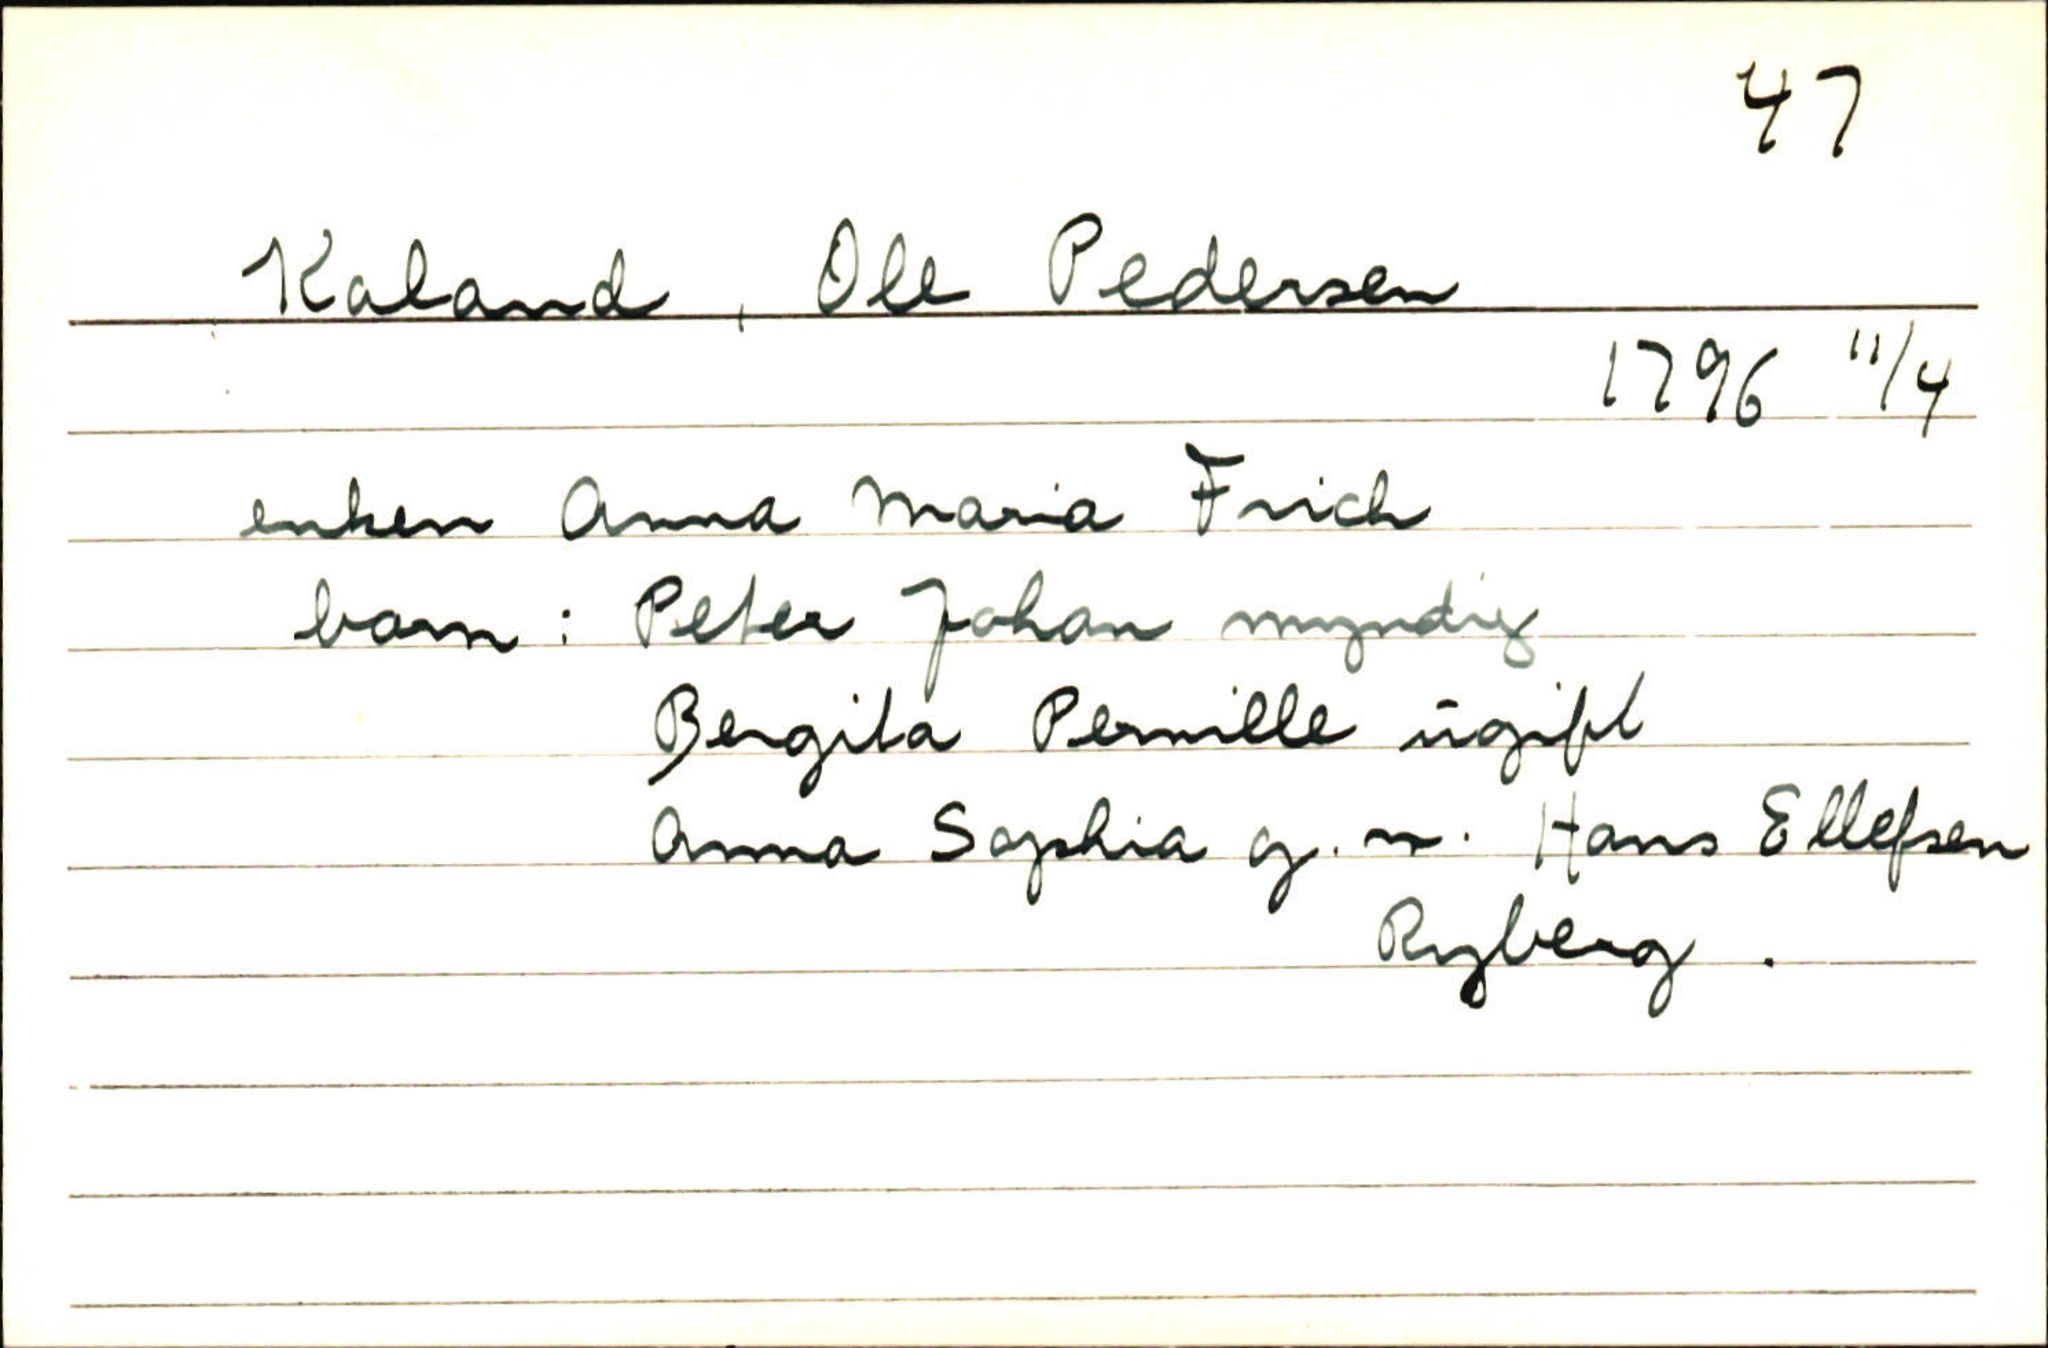 47
Kaland, Ole Pedersen
1796 11/4
enken Anna Maria Frich
barn: Peter Johan myndig
Bergita Pernille ūgift
Anna Sophia g. m. Hans Ellefsen
Ryberg.